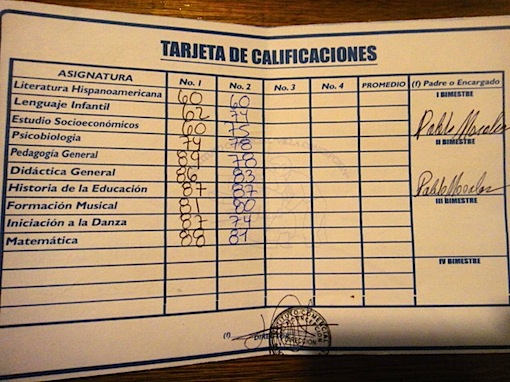 TARJETA DE CALIFICACIONES
ASIGNATURA No. 1 No. 2 No. 3 No. 4 PROMEDIO (f) Padre o Encargado
Literatura Hispanoamericana 60 60 I BIMESTRE
Lenguaje Infantil 62 74
Estudio Socioeconómicos 60 75 Pablo Morales
Psicobiología 74 78 II BIMESTRE
Pedagogía General 89 78
Didáctica General 86 83
Historia de la Educación 87 87 Pablo Morales
Formación Musical 81 80 III BIMESTRE
Iniciación a la Danza 87 74
Matemática 88 81
IV BIMESTRE
(f)
DIRECCION